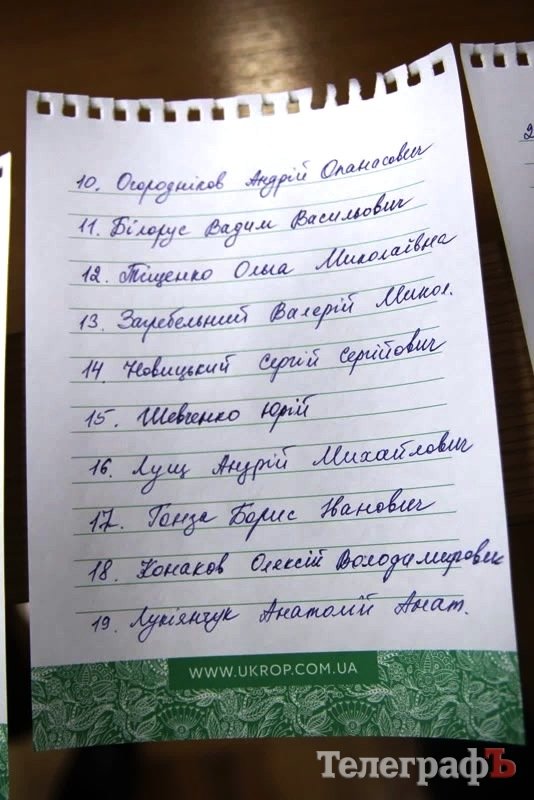 10. Огородніков Андрій Опанасович
11. Білорус Вадим Васильович
12. Тіщенко Ольга Миколаївна
13. Загребельний Валерій Микол.
14. Новицький Сергій Сергійович
15. Шевченко Юрій
16. Лущ Андрій Михайлович
17. Гонза Борис Іванович
18. Конаков Олексій Володимирович
19. Лукіянчук Анатолій Анат.
WWW.UKROP.COM.UA
ТелеграфЪ
2